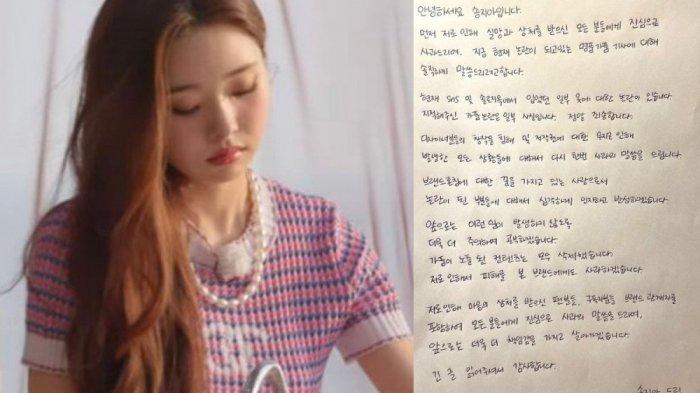 안녕하세요 송지아입니다.
먼저 저로 인해 실망과 상처를 받으신 모든 분들에게 진심으로
사과드리며, 지금 현재 논란이 되고있는 명품가품 기사에 대해
솔직하게 말씀드리려고합니다.
현재 SNS 및 솔로지옥에서 입었던 일부 옷에 대한 논란이 있습니다.
지적해주신 가품논란은 일부 사실입니다. 정말 죄송합니다.
디자이너분들의 창작물 침해 및 저작권에 대한 무지로 인해
발생한 모든 상황들에 대해서 다시 한번 사과의 말씀을 드립니다.
브랜드론칭에 대한 꿈을 가지고 있는 사람으로서
논란이 된 부분들에 대해서 심각하게 인지하고 반성하겠습니다.
앞으로는 이런 일이 발생하지 않도록
더욱 더 주의하며 공부하겠습니다.
가품이 노출 된 컨텐츠는 모두 삭제했습니다.
저로 인해서 피해를 본 브랜드에게도 사과하겠습니다.
저로인해 마음의 상처를 받으신 팬분들, 구독자분들 브랜드 관계자를
포함하여 모든 분들에게 진심으로 사과의 말씀을 드리며,
앞으로는 더욱 더 책임감을 가지고 살아가겠습니다.
긴 글 읽어주셔서 감사합니다.
송지아 드림